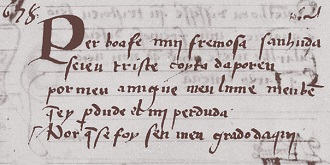 678.
Per boafe mui fremosa sanhuda
seieu triste coytadaporen
pormeu amigue meu lume meubē
q̄ey pdude el mi perduda
Por q̄se foy sen meu grado daqui